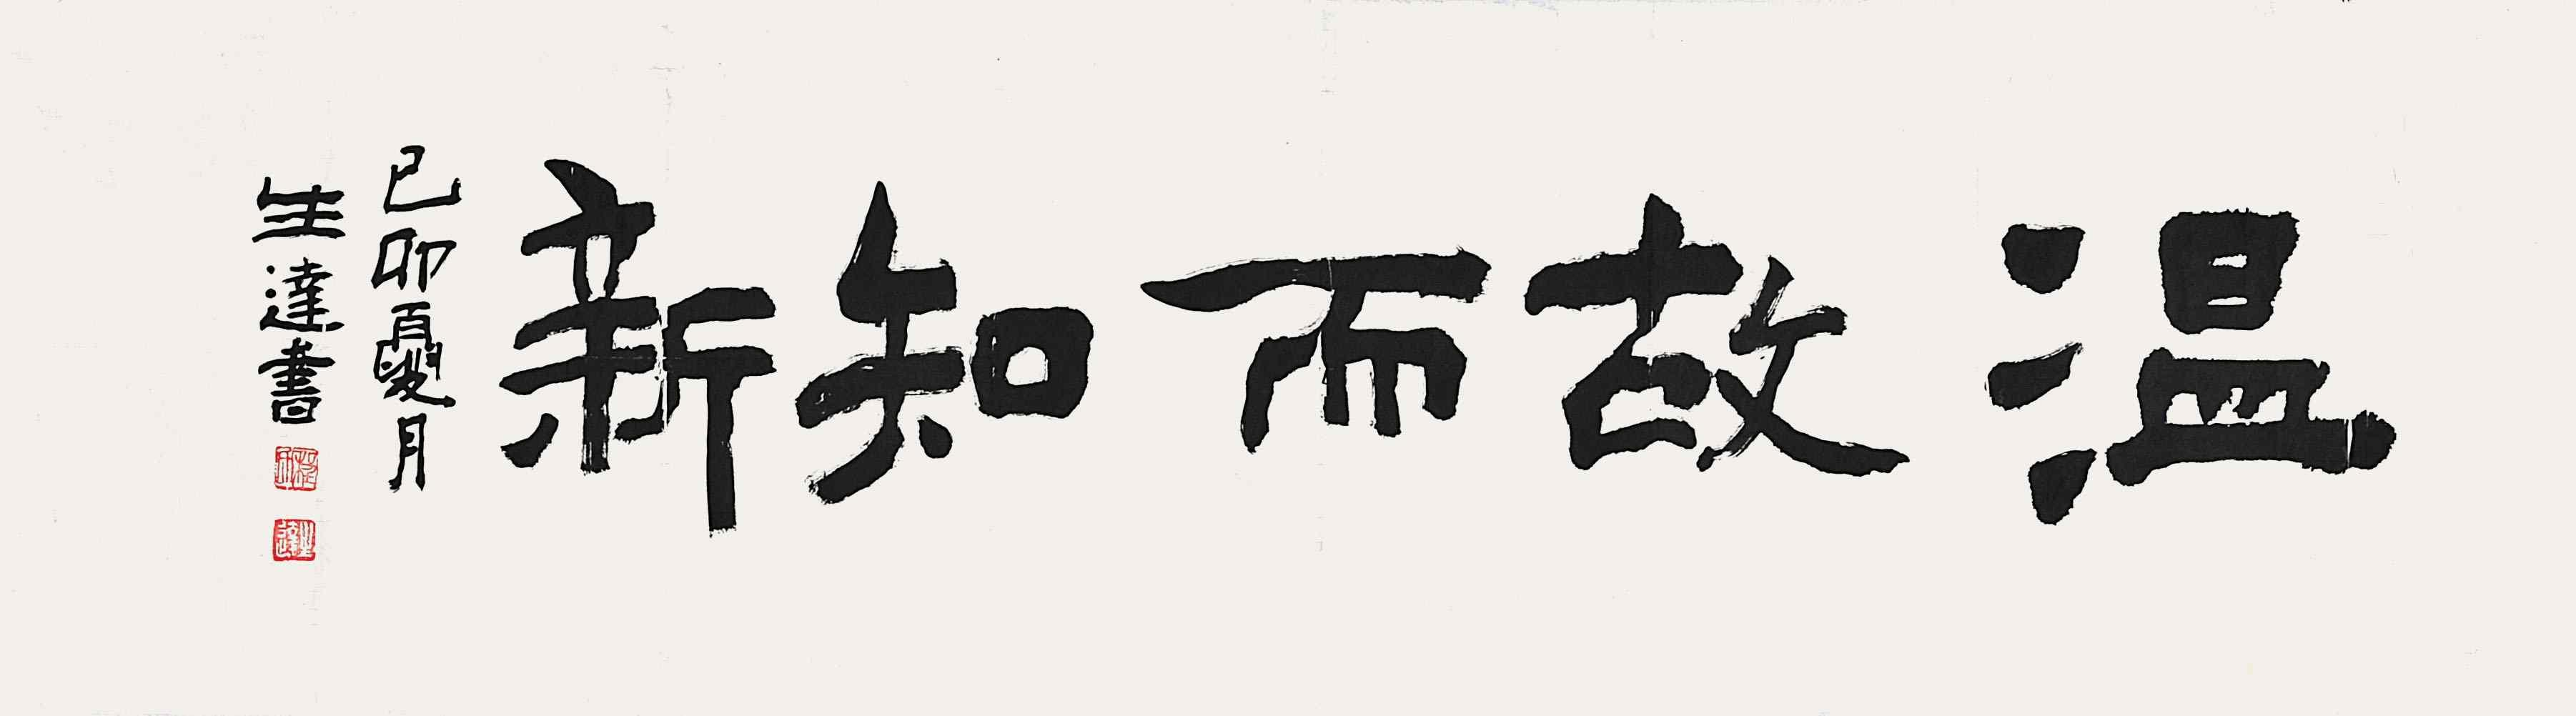 温故而知新
己卯夏月
生達書
生達